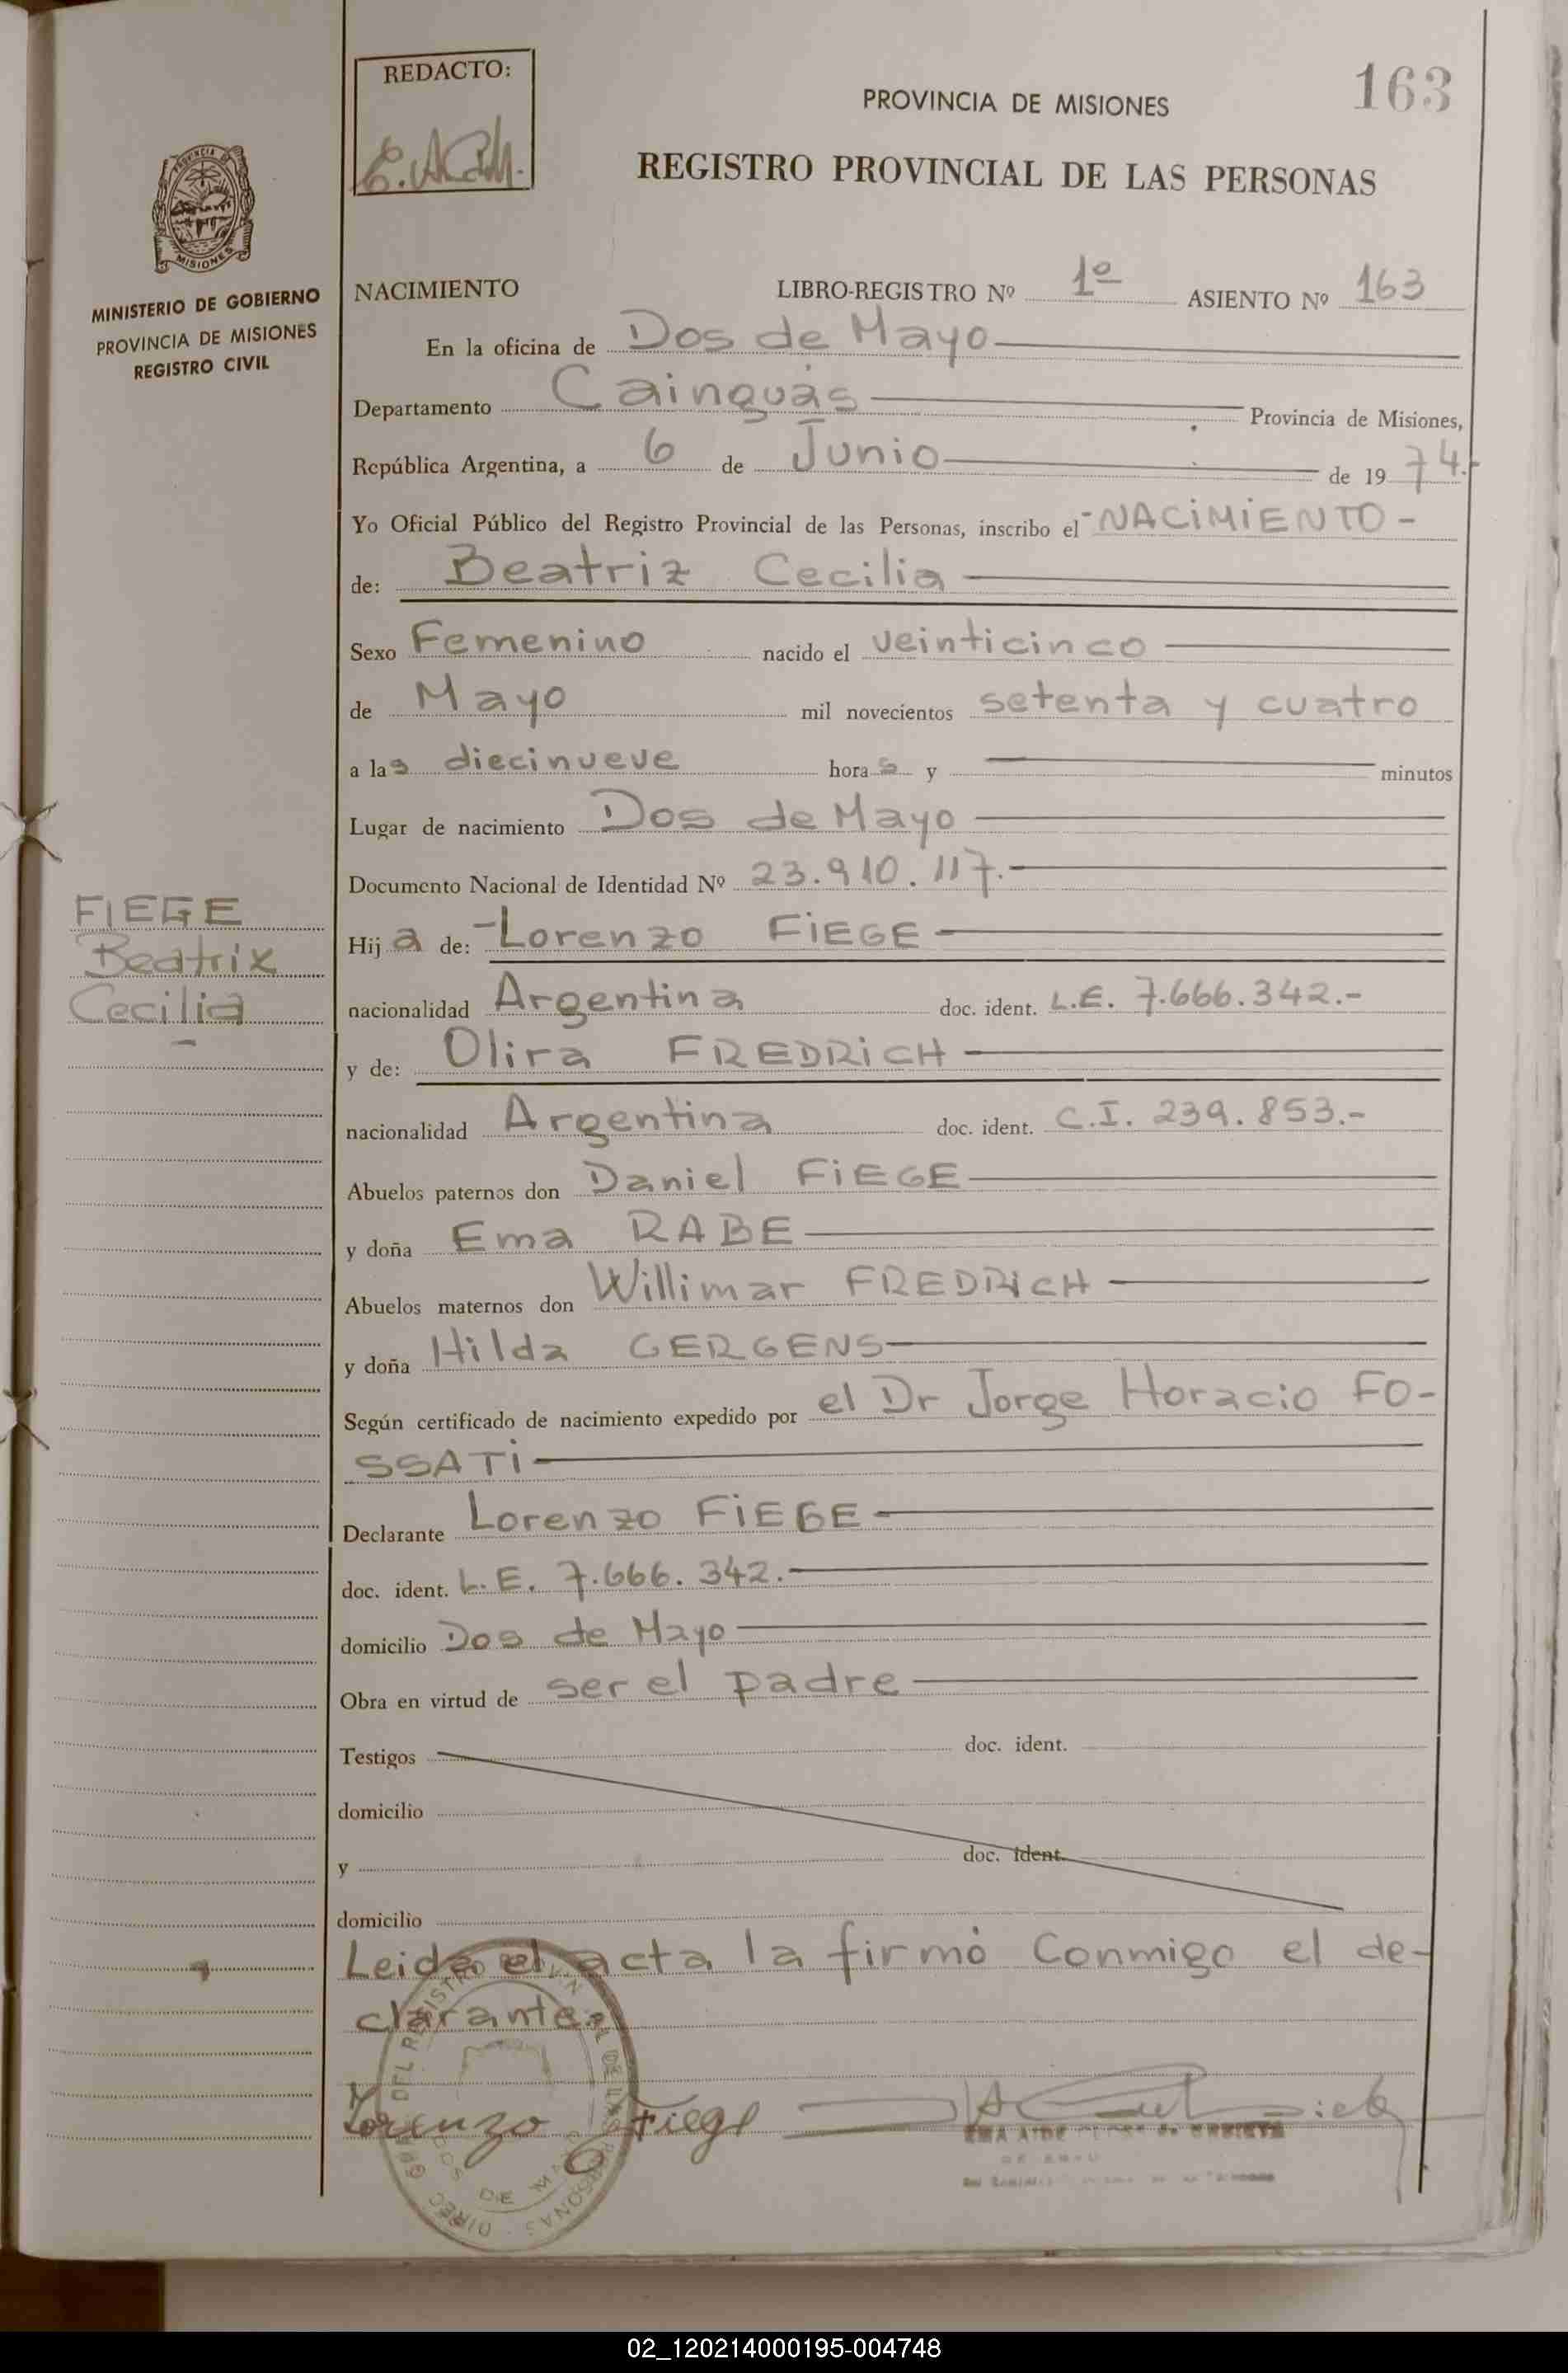 163
REDACTO:
PROVINCIA DE MISIONES
REGISTRO PROVINCIAL DE LAS PERSONAS
PROVINCIA DE
MISIONES
MINISTERIO DE GOBIERNO
PROVINCIA DE MISIONES
REGISTRO CIVIL
NACIMIENTO LIBRO-REGISTRO Nº 1º ASIENTO Nº 163
En la oficina de Dos de Mayo
Departamento Cainguás Provincia de Misiones,
República Argentina, a 6 de Junio de 1974.-
Yo Oficial Público del Registro Provincial de las Personas, inscribo el -NACIMIENTO-
de: Beatriz Cecilia
Sexo Femenino nacido el veinticinco
de Mayo mil novecientos setenta y cuatro
a las diecinueve horas y minutos
Lugar de nacimiento Dos de Mayo
Documento Nacional de Identidad Nº 23.910.117.-
FIEGE
Beatrix
Cecilia
-
Hija de: -Lorenzo FIEGE
nacionalidad Argentina doc. ident. L.E. 7.666.342.-
y de: Olira FREDRICH
nacionalidad Argentina doc. ident. C.I. 239.853.-
Abuelos paternos don Daniel FIEGE
y doña Ema RABE
Abuelos maternos don Willimar FREDRICH
y doña Hilda GERGENS
Según certificado de nacimiento expedido por el Dr Jorge Horacio FO-
SSATI
Declarante Lorenzo FIEGE
doc. ident. L.E. 7.666.342.
domicilio Dos de Mayo
Obra en virtud de ser el padre
Testigos doc. ident.
domicilio
y doc. ident.
domicilio
Leida el acta la firmó conmigo el de-
clarante.
Lorenzo Fiege
DOS DE MAYO
02_120214000195-004748